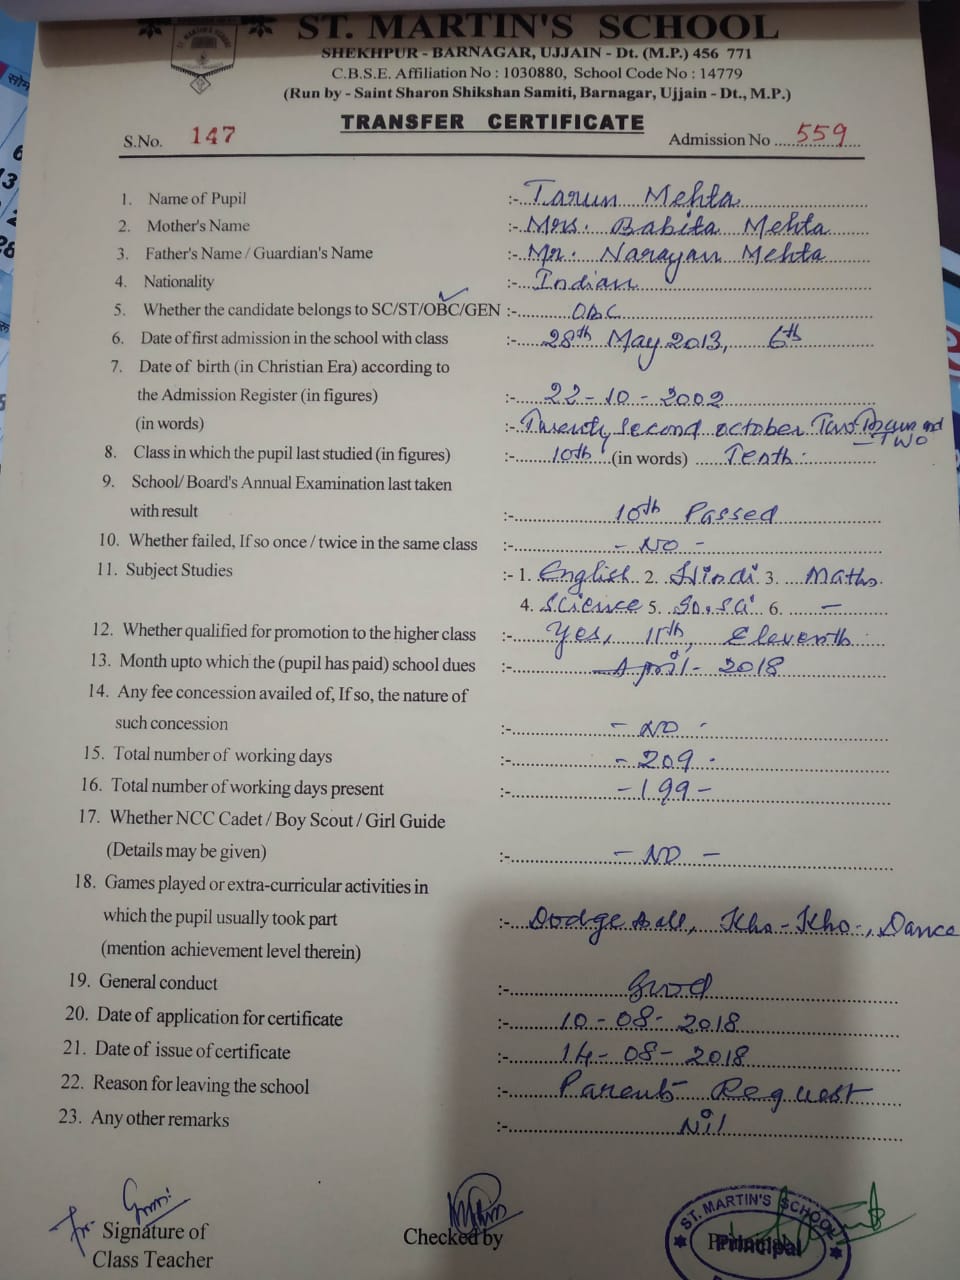 ST. MARTIN'S SCHOOL
SHEKHPUR - BARNAGAR, UJJAIN - Dt. (M.P.) 456 771
C.B.S.E. Affiliation No : 1030880, School Code No : 14779
(Run by - Saint Sharon Shikshan Samiti, Barnagar, Ujjain - Dt., M.P.)
TRANSFER CERTIFICATE
S.No. 147 Admission No 559
1. Name of Pupil :- Tarun Mehta
2. Mother's Name :- Mrs. Babita Mehta
3. Father's Name / Guardian's Name :- Mr. Narayan Mehta
4. Nationality :- Indian
5. Whether the candidate belongs to SC/ST/OBC/GEN :- OBC
6. Date of first admission in the school with class :- 28th May 2013, 6th
7. Date of birth (in Christian Era) according to
the Admission Register (in figures) :- 22-10-2002
(in words) :- Twenty Second october Two Thousand
Two
8. Class in which the pupil last studied (in figures) :- 10th (in words) Tenth
9. School/ Board's Annual Examination last taken
with result :- 10th Passed
10. Whether failed, If so once / twice in the same class :- - NO -
11. Subject Studies :- 1. English 2. Hindi 3. Maths
4. Science 5. So. Sci 6. —
12. Whether qualified for promotion to the higher class :- Yes, 11th, Eleventh
13. Month upto which the (pupil has paid) school dues :- April - 2018
14. Any fee concession availed of, If so, the nature of
such concession :- - NO -
15. Total number of working days :- - 209 -
16. Total number of working days present :- - 199 -
17. Whether NCC Cadet / Boy Scout / Girl Guide
(Details may be given) :- - NO -
18. Games played or extra-curricular activities in
which the pupil usually took part :- Dodge Ball, Kho-Kho, Dance
(mention achievement level therein)
19. General conduct :- Good
20. Date of application for certificate :- 10-08-2018
21. Date of issue of certificate :- 14-08-2018
22. Reason for leaving the school :- Parents Request
23. Any other remarks :- Nil
Signature of
Class Teacher
Checked by
ST. MARTIN'S SCHOOL
Principal